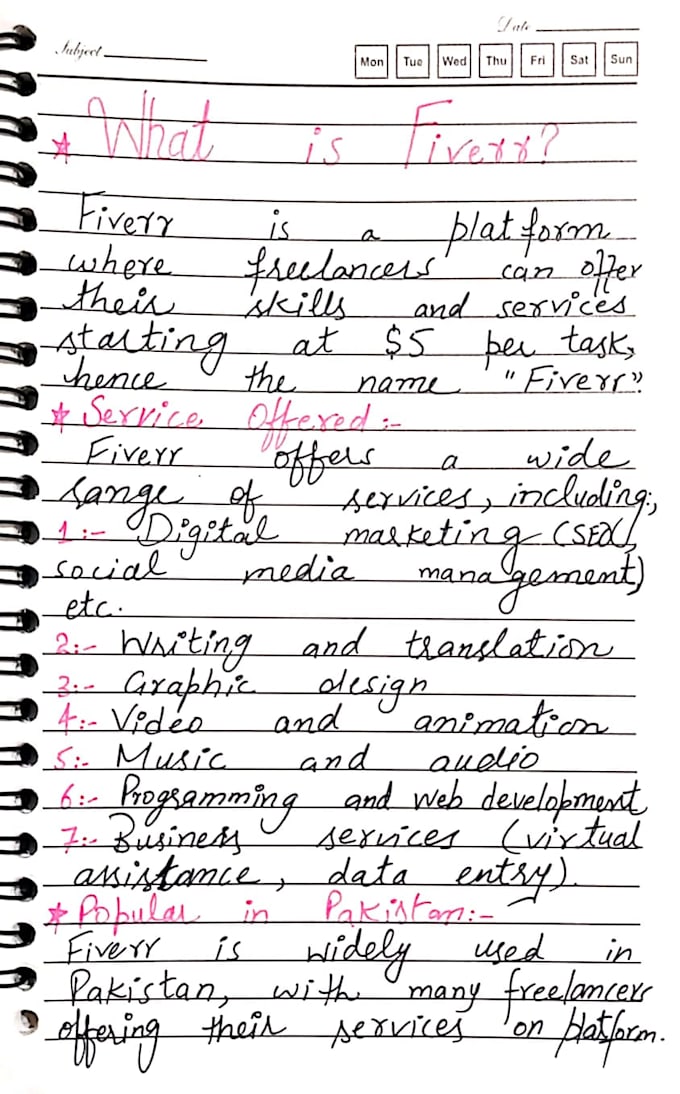 Date
Subject
Mon Tue Wed Thu Fri Sat Sun
☆ What is Fiverr?
Fiverr is a platform
where freelancers can offer
their skills and services
starting at $5 per task,
hence the name "Fiverr".
☆ Service Offered :-
Fiverr offers a wide
range of services, including;,
1:- Digital marketing (SEO,
social media management)
etc.
2:- Writing and translation
3:- Graphic design
4:- Video and animation
5:- Music and audio
6:- Programming and web development
7:- Business services (virtual
assistance, data entry).
☆ Popular in Pakistan:-
Fiverr is widely used in
Pakistan, with many freelancers
offering their services on platform.